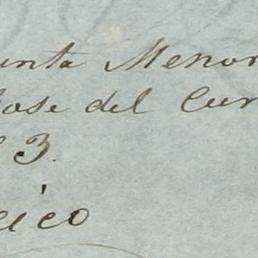 unta Menor
Jose del Cur
3.
cico